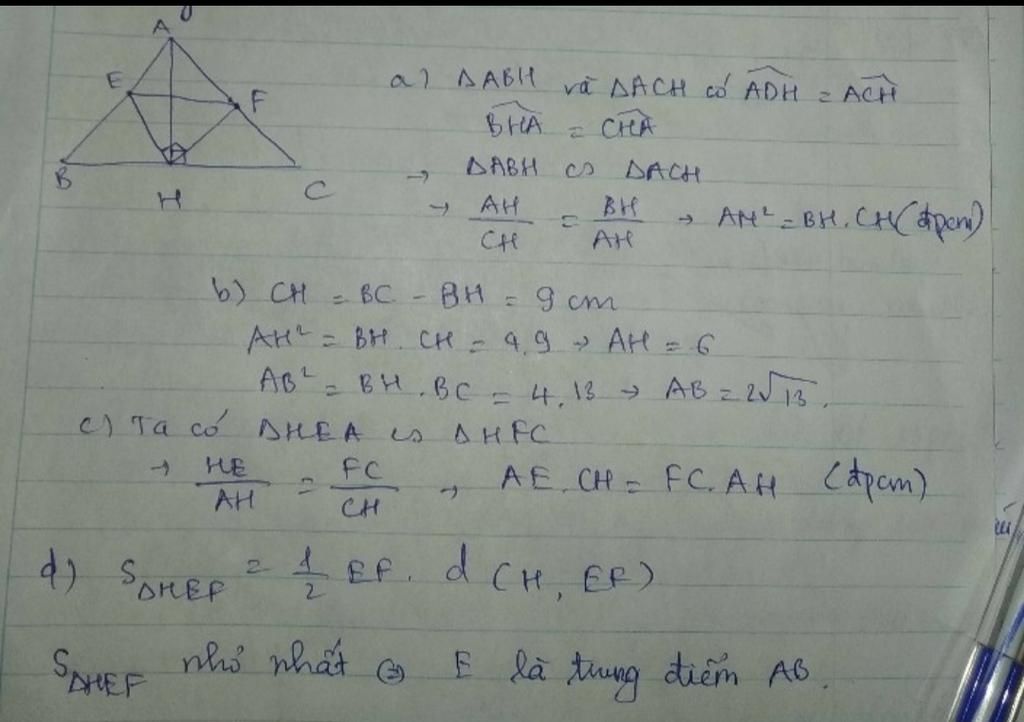 A
E
F
B
H
C
a) ΔABH và ΔACH có ADH = ACH
BHA = CHA
→ ΔABH ∽ ΔACH
→ AH/CH = BH/AH → AH² = BH.CH (đpcm)
b) CH = BC - BH = 9 cm
AH² = BH. CH = 4.9 → AH = 6
AB² = BH.BC = 4.13 → AB = 2√13.
c) Ta có ΔHEA ∽ ΔHFC
→ HE/AH = FC/CH → AE.CH = FC.AH (đpcm)
d) S ΔHEF = 1/2 EF. d (H, EF)
S ΔHEF nhỏ nhất ⇔ E là trung điểm AB.